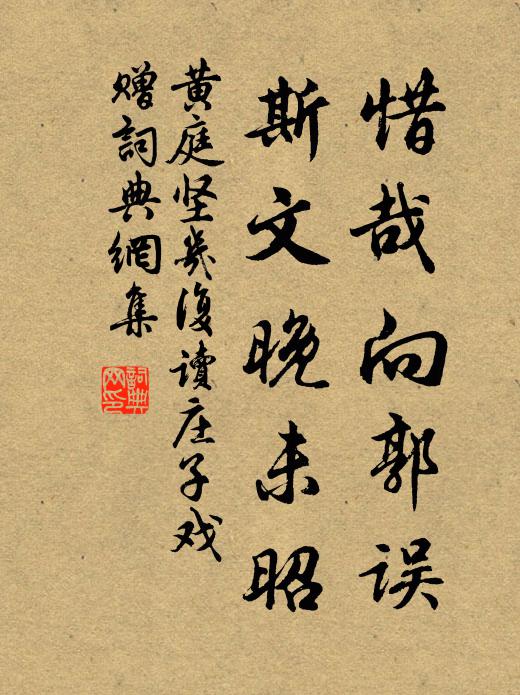 惜哉向郭误
斯文晚未昭
黄庭坚几复读庄子戏
赠詞典網集
詞典
网印